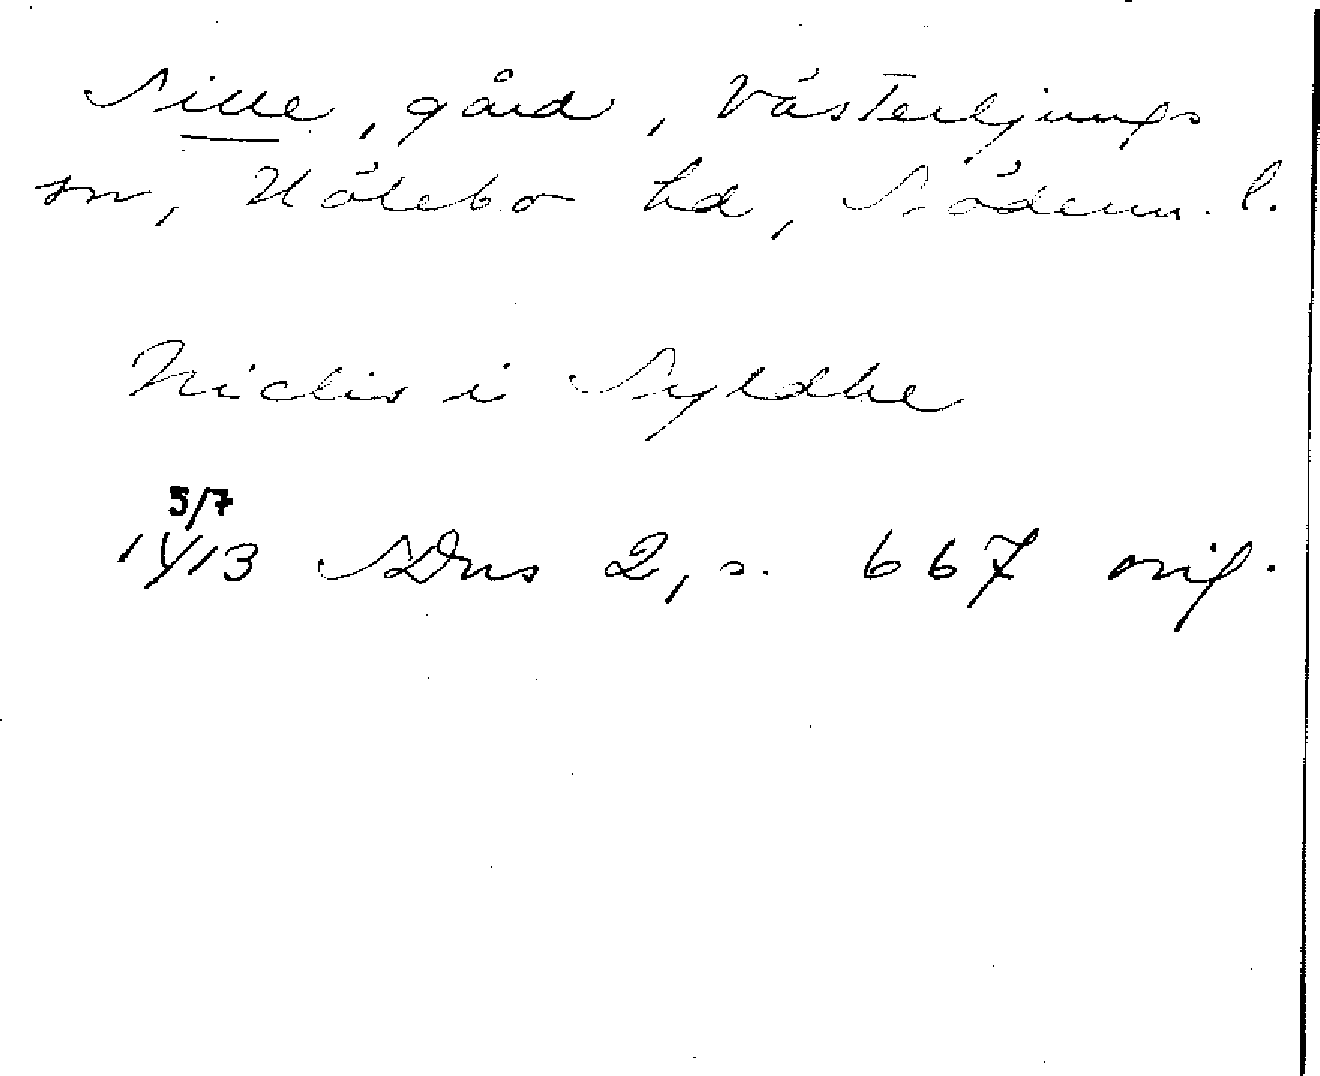 Sille, gård, Västerljungs
sn, Hölebo hd, Söderm. l.
Niclis i Syldhe
5/7
1413 SDns 2, s. 667 orig.